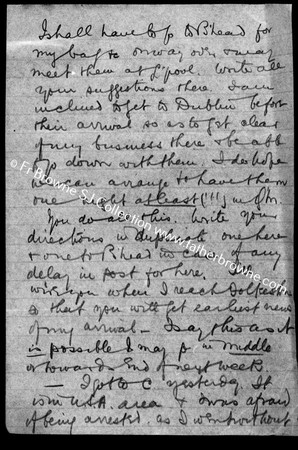 I shall have to go to B'head for
my bag & on way over & may
meet them at L'pool. Write all
your suggestions there. I am
inclined to get to Dublin before
their arrival so as to get clear
of my business there & be able
to go down with them. I do hope
we can arrange to have them
one night at least (!!!) in
You do all this. Write your
directions in duplicate one here
& one to B'head in case of any
delay in post for here.
wire you when I reach Folkestone
so that you will get earliest news
of my arrival – I say this as it
is possible I may go in middle
or towards end of next week.
— I got to C yesterday. It
is in U.S.A. area & I was afraid
of being arrested as I went without
© Fr Browne S.J. Collection www.fatherbrowne.com